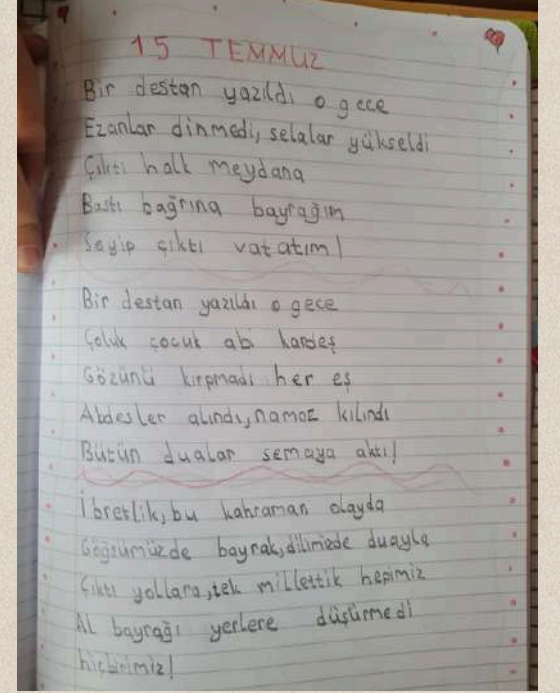 15 TEMMUZ
Bir destan yazıldı o gece
Ezanlar dinmedi, selalar yükseldi
Çıktı halk meydana
Bastı bağrına bayrağım
Sayip çıktı vatatım!
Bir destan yazıldı o gece
Çoluk çocuk abi kardeş
Gözünü kırpmadı her eş
Abdesler alındı, namaz kılındı
Bütün dualar semaya aktı!
İbretlik, bu kahraman olayda
Göğsümüzde bayrak, dilimizde duayla
Çıktı yollara, tek millettik hepimiz
Al bayrağı yerlere düşürmedi
hiçbirimiz!